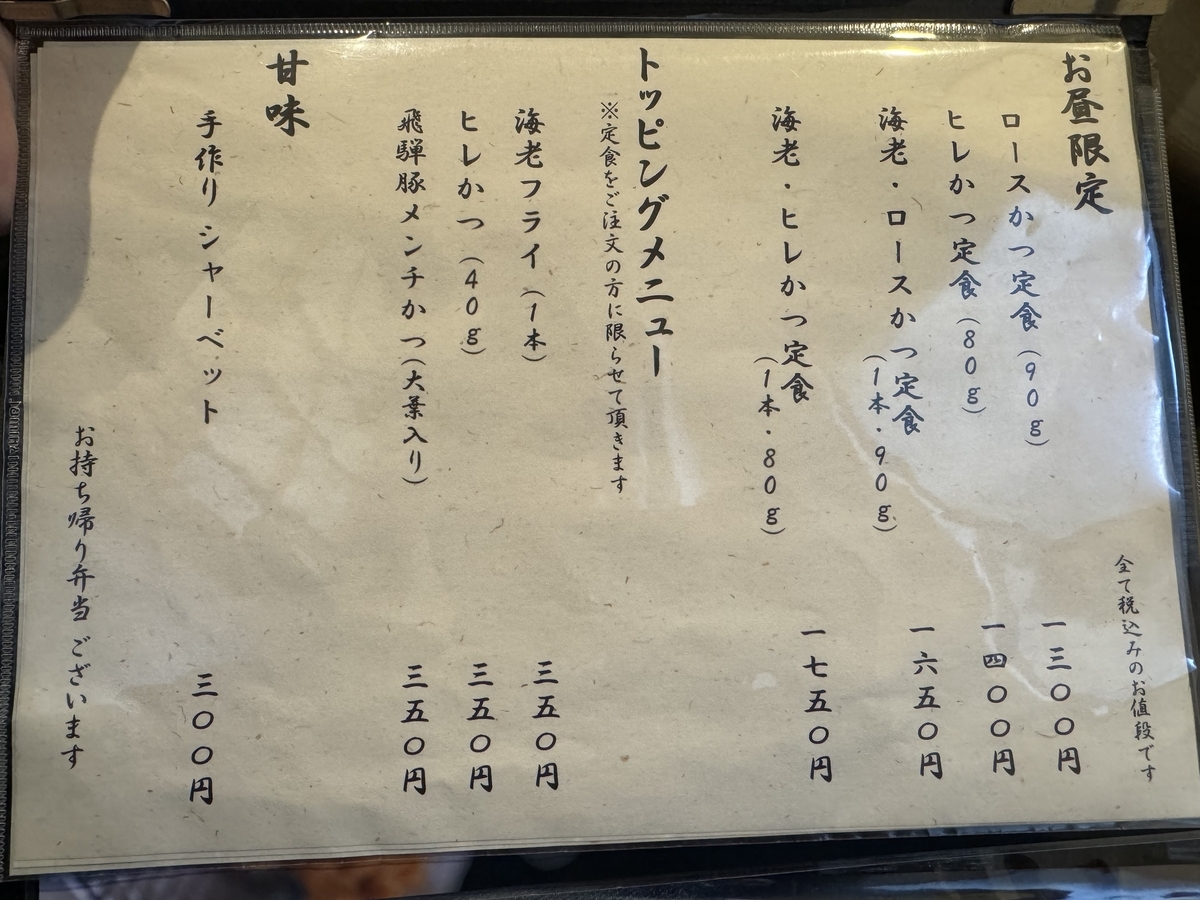 お昼限定
全て税込みのお値段です
ロースかつ定食（90g） 一三〇〇円
ヒレかつ定食（80g） 一四〇〇円
海老・ロースかつ定食
（1本・90g） 一六五〇円
海老・ヒレかつ定食
（1本・80g） 一七五〇円
トッピングメニュー
※定食をご注文の方に限らせて頂きます
海老フライ（1本） 三五〇円
ヒレかつ（40g） 三五〇円
飛騨豚メンチかつ（大葉入り） 三五〇円
甘味
手作りシャーベット 三〇〇円
お持ち帰り弁当ございます